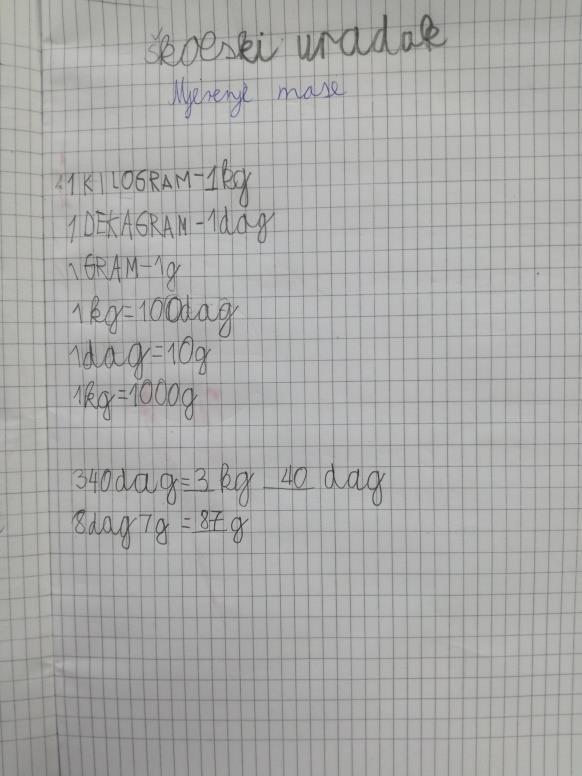 Školski uradak
Mjerenje mase
1 KILOGRAM-1kg
1 DEKAGRAM-1dag
1 GRAM-1g
1kg=100dag
1dag=10g
1kg=1000g
340dag=3 kg 40 dag
8dag 7g = 87 g